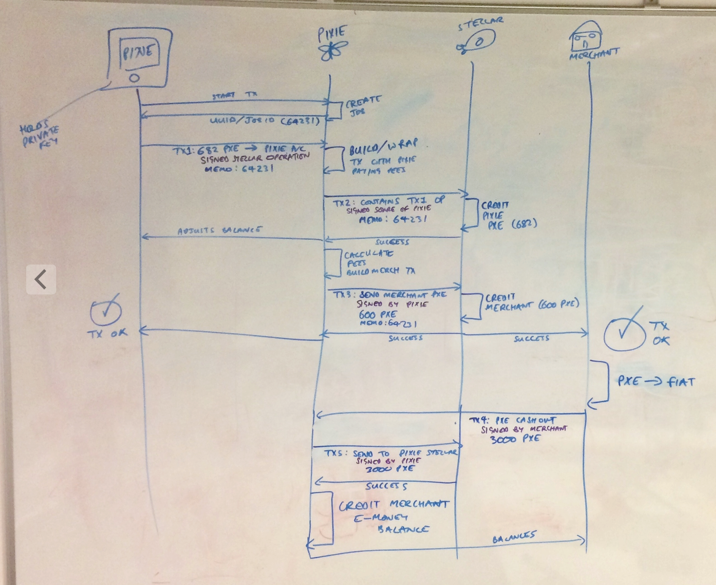 PIXIE
PIXIE
STELLAR
MERCHANT
HOLDS
PRIVATE
KEY
START TX
UUID/JOBID (64231)
CREATE
JOB
TX1: 682 PXE → PIXIE A/C
SIGNED STELLAR OPERATION
MEMO: 64231
BUILD/WRAP
TX WITH PIXIE
PAYING FEES
TX2: CONTAINS TX1 OP
SIGNED SOURCE OF PIXIE
MEMO: 64231
CREDIT
PIXIE
PXE (682)
ADJUSTS BALANCE
SUCCESS
CALCULATE
FEES
BUILD MERCH TX
TX3: SEND MERCHANT PXE
SIGNED BY PIXIE
600 PXE
MEMO: 64231
CREDIT
MERCHANT (600 PXE)
TX OK
SUCCESS
SUCCESS
TX
OK
PXE → FIAT
TX4: PXE CASHOUT
SIGNED BY MERCHANT
3000 PXE
TX5: SEND TO PIXIE STELLAR
SIGNED BY PIXIE
3000 PXE
SUCCESS
CREDIT MERCHANT
E-MONEY
BALANCE
BALANCES